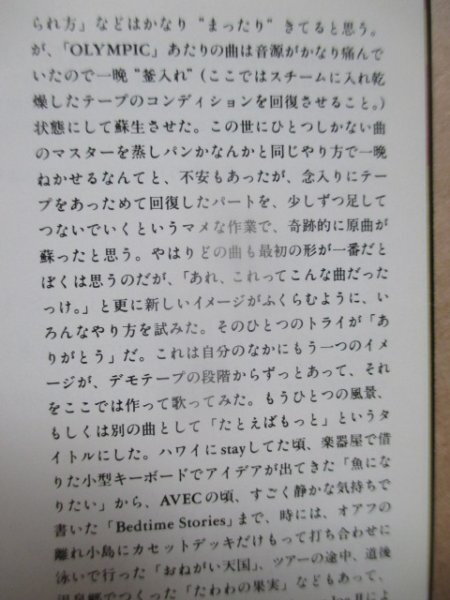 られ方」などはかなり “まったり” きてると思う。
が、「OLYMPIC」あたりの曲は音源がかなり痛んで
いたので一晩 “釜入れ”（ここではスチームに入れ乾
燥したテープのコンディションを回復させること。）
状態にして蘇生させた。この世にひとつしかない曲
のマスターを蒸しパンかなんかと同じやり方で一晩
ねかせるなんてと、不安もあったが、念入りにテー
プをあっためて回復したパートを、少しずつ足して
つないでいくというマメな作業で、奇跡的に原曲が
蘇ったと思う。やはりどの曲も最初の形が一番だと
ぼくは思うのだが、「あれ、これってこんな曲だった
っけ。」と更に新しいイメージがふくらむように、い
ろんなやり方を試みた。そのひとつのトライが「あ
りがとう」だ。これは自分のなかにもう一つのイメ
ージが、デモテープの段階からずっとあって、それ
をここでは作って歌ってみた。もうひとつの風景、
もしくは別の曲として「たとえばもっと」というタ
イトルにした。ハワイにstayしてた頃、楽器屋で借
りた小型キーボードでアイデアが出てきた「魚にな
りたい」から、AVECの頃、すごく静かな気持ちで
書いた「Bedtime Stories」まで、時には、オアフの
離れ小島にカセットデッキだけもって打ち合わせに
泳いで行った「おねがい天国」、ツアーの途中、道後
温泉郷でつくった「たわわの果実」などもあって、